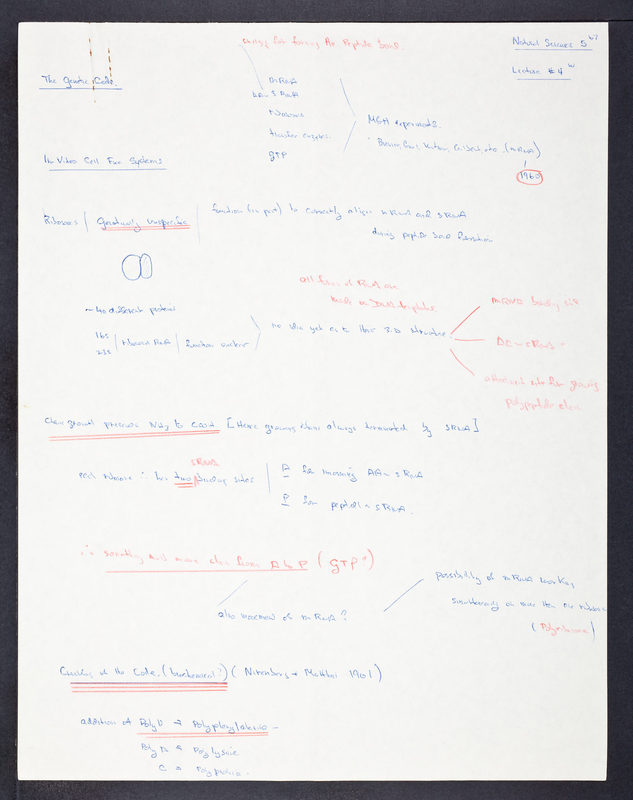 energy for forming the Peptide bond.
Natural Science 5
Lecture # 4
The Genetic Code.
mRNA
AA ~ sRNA
ribosomes
transfer enzymes
GTP
MGA experiments.
(mRNA)
1960
In Vitro Cell Free Systems
Ribosomes
Genetically unspecific
function (in part) to correctly align mRNA and sRNA
during peptide bond formation
all forms of RNA are
made on DNA templates
mRNA binding site
~ 40 different proteins
16s
23s
ribosomal RNA
function unclear
no idea yet as to their 3-D structure.
AA ~ sRNA "
attachment site for growing
polypeptide chain
Chain growth proceeds NH2 to COOH [Hence growing chain always terminated by sRNA]
sRNA
each ribosome ∴ has two binding sites
A for incoming AA ~ sRNA
P for peptidyl ~ sRNA.
∴ something must move chain from A to P (GTP?)
also movement of mRNA?
possibility of mRNA working
simultaneously on more than one ribosome
(Polyribosome)
Cracking of the Code. (biochemical?) (Nirenberg + Matthaei 1961)
addition of Poly U → Polyphenylalanine -
Poly A → Polylysine
C → Polyproline.